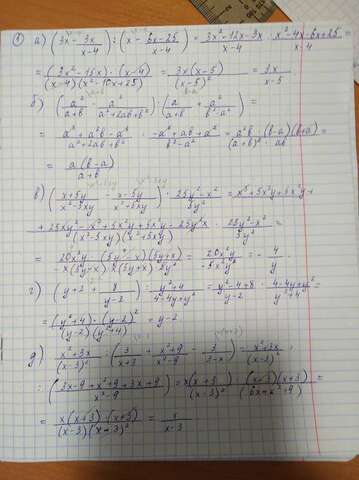 ① а) (3x - 3x/(x-4)) : (x - (6x-25)/(x-4)) = (3x²-12x-3x)/(x-4) : (x²-4x-6x+25)/(x-4) =
= (3x²-15x)·(x-4)/((x-4)(x²-10x+25)) = 3x(x-5)/(x-5)² = 3x/(x-5)
б) (a²/(a+b) - a³/(a²+2ab+b²)) : (a/(a+b) + a²/(b²-a²)) =
= (a³+a²b-a³)/(a²+2ab+b²) : (-a²+ab+a²)/(b²-a²) = a²b·(b-a)(b+a)/((a+b)²·ab) =
= a(b-a)/(a+b)
в) ((x+5y)/(x²-5xy) - (x-5y)/(x²+5xy)) · (25y²-x²)/5y² =
+ 25xy²-x³+5x²y+5x²y-25y²x/((x²-5xy)(x²+5xy)) · (25y²-x²)/5y² =
= 20x²y·(5y-x)(5y+x)/(-x(5y-x)·x(5y+x)·5y²) = 20x²y/(-5x²y²) = -4/y
г) (y+2+8/(y-2)) : (y²+4)/(4-4y+y²) = (y²-4+8)/(y-2) · (4-4y+y²)/(y²+4) =
= (y²+4)·(y-2)²/((y-2)(y²+4)) = y-2
д) (x²+3x)/(x-3)² : (3/(x+3) + (x²+9)/(x²-9) - 3/(3-x)) = (x²+3x)/(x-3)² :
: ((3x-9+x²+9+3x+9)/(x²-9)) = x(x+3)/(x-3)² · (x-3)(x+3)/(6x+x²+9) =
= x(x+3)·(x+3)/((x-3)(x+3)²) = x/(x-3)